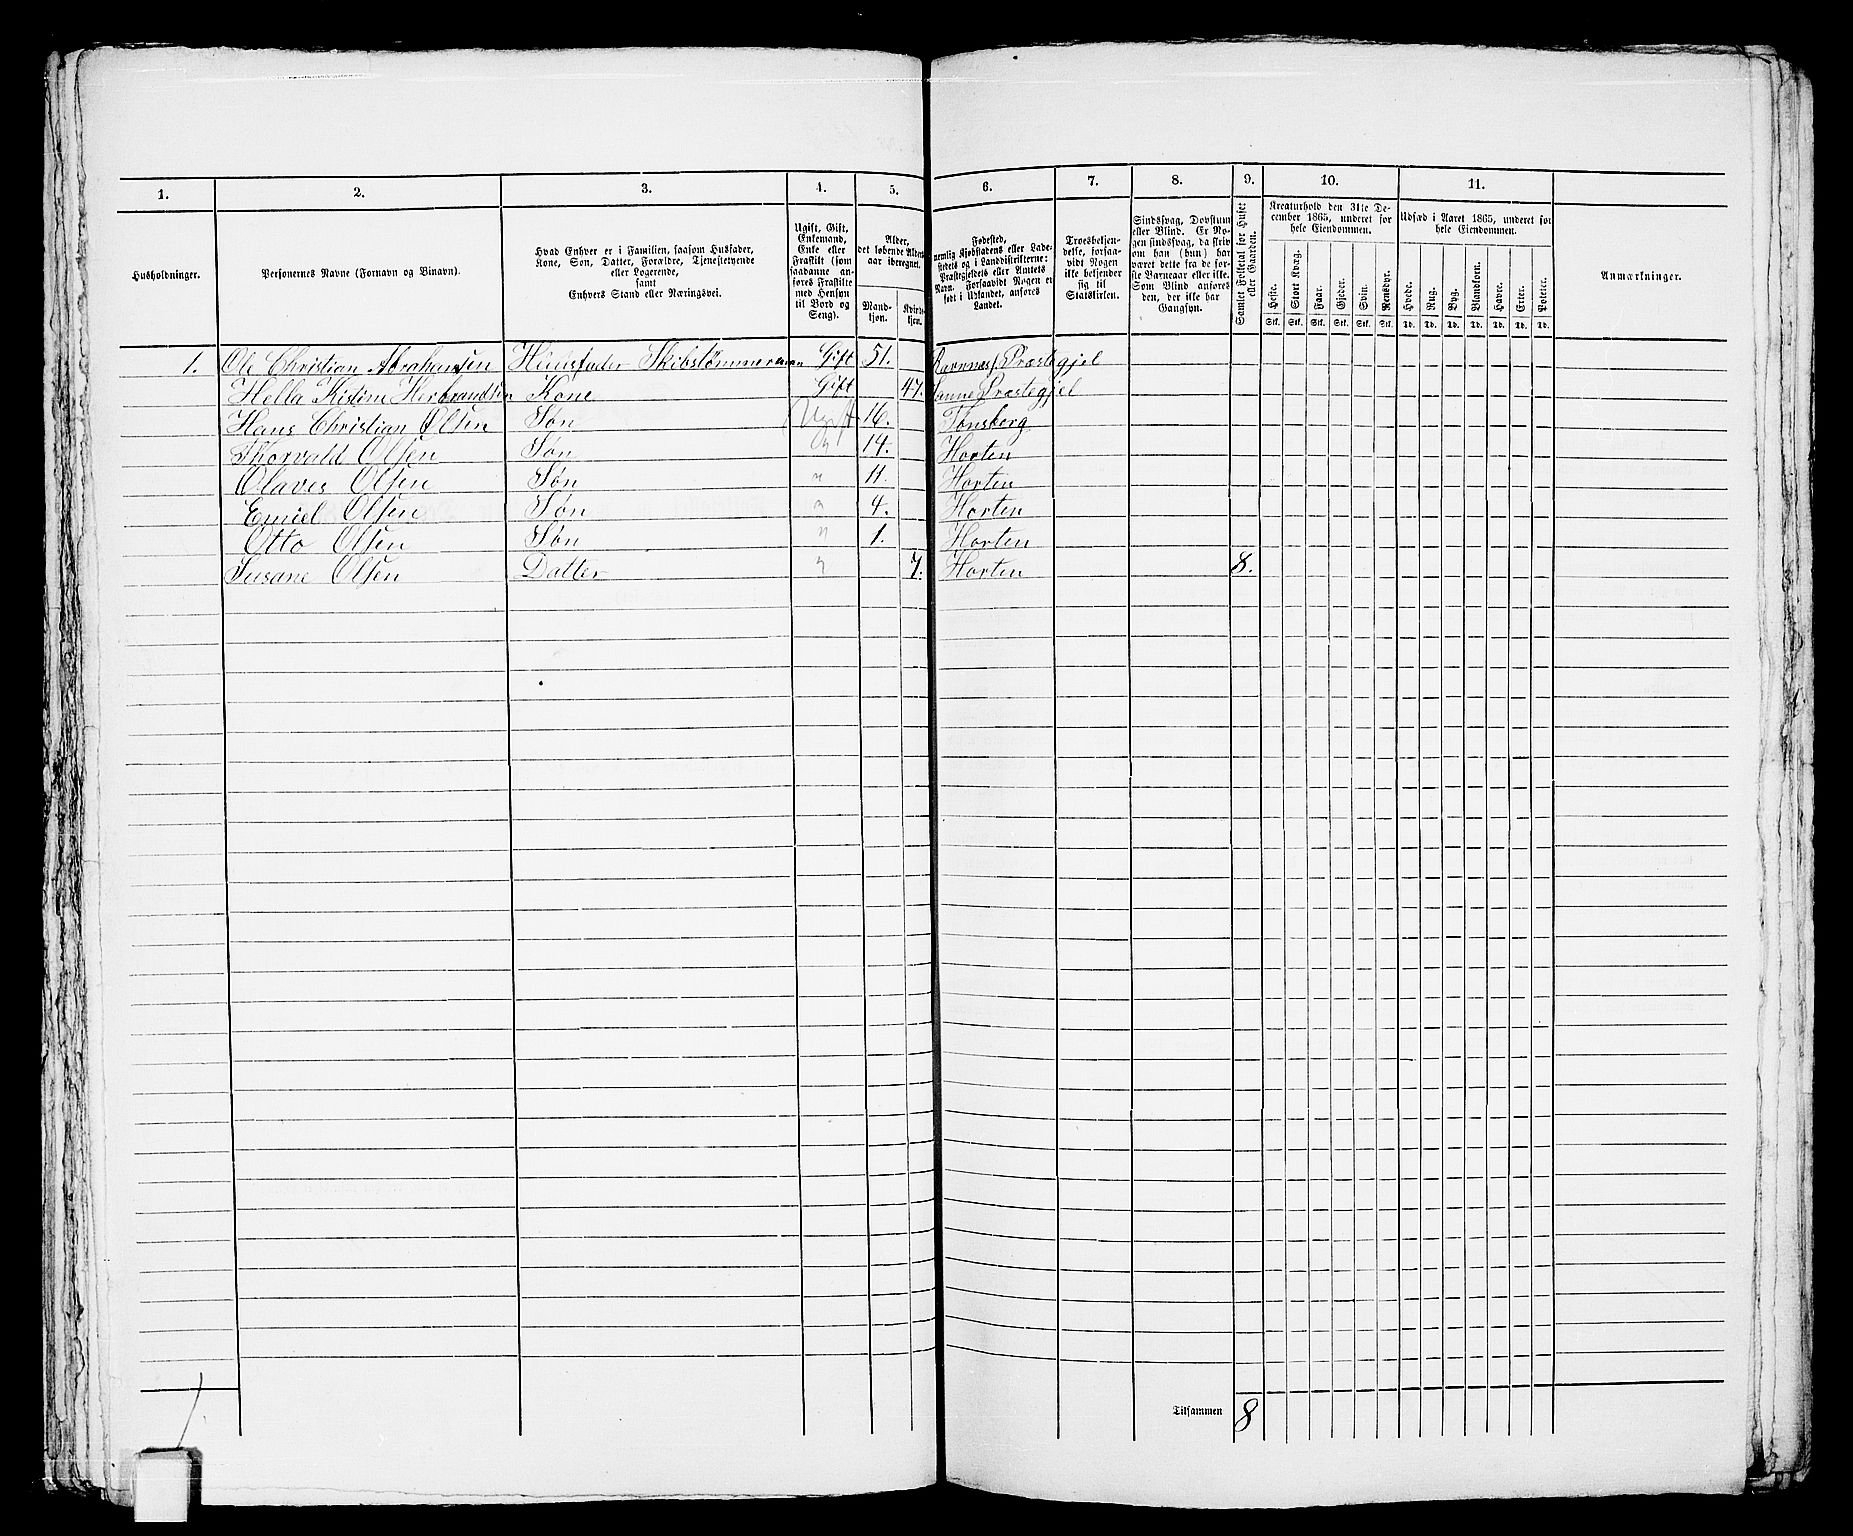 1. 2. 3. 4. 5. 6. 7. 8. 9. 10. 11.
Husholdninger.
Personernes Navne (Fornavn og Binavn).
Hvad Enhver er i Familien, saasom Husfader,
Kone, Søn, Datter, Forældre, Tjenestetyende
eller Logerende,
samt
Enhvers Stand eller Næringsvei.
Ugift, Gift,
Enkemand,
Enke eller
Fraskilt (som
saadanne an-
føres Fraskilte
med Hensyn
til Bord og
Seng).
Alder,
det løbende Alders-
aar iberegnet.
Mand-
kjøn.
Kvinde-
kjøn.
Fødested,
nemlig Kjøbstadens eller Lade-
stedets og i Landdistrikterne:
Præstegjeldets eller Amtets
Navn. Forsaavidt Nogen er
født i Udlandet, anføres
Landet.
Troesbekjen-
delse, forsaa-
vidt Nogen
ikke bekjender
sig til
Statskirken.
Sindssvag, Døvstum
eller Blind. Er No-
gen sindssvag, da skriv
om han (hun) har
været dette fra de før-
ste Barneaar eller ikke.
Som Blind anføres
den, der ikke har
Gangsyn.
Samlet Folketal for Huset
eller Gaarden.
Kreaturhold den 31te De-
cember 1865, underet for
hele Eiendommen.
Heste. Stort Kvæg. Faar. Gjeder. Svin. Rensdyr.
Stk. Stk. Stk. Stk. Stk. Stk.
Udsæd i Aaret 1865, underet for
hele Eiendommen.
Hvede. Rug. Byg. Blandkorn. Havre. Erter. Poteter.
Td. Td. Td. Td. Td. Td. Td.
Anmærkninger.
1. Ole Christian Abrahamsen Huusfader Skibstømmerman Gift 51. Præstegjel
Hella Kistine Herbrandsen Kone Gift 47. Præstegjel
Hans Christian Olsen Søn Ugift 16. Tønsberg
Thorvald Olsen Søn " 14. Horten
Olaves Olsen Søn " 11. Horten
Emiel Olsen Søn " 4. Horten
Otto Olsen Søn " 1. Horten
Susane Olsen Datter " 7. Horten 8.
1
Tilsammen 8